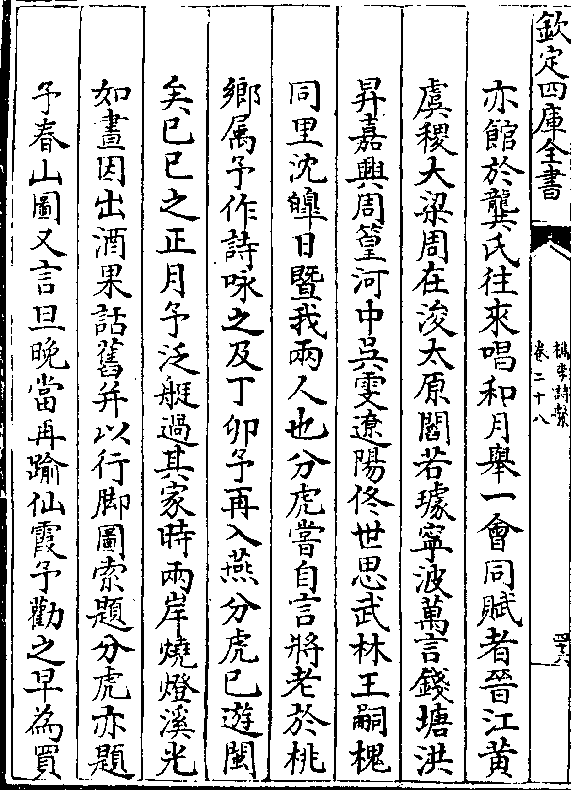 欽定四庫全書
檇李詩繫
卷二十八
四十六
亦館於龔氏往來唱和月舉一會同賦者晉江黄
虞稷大梁周在浚太原閻若璩寧波萬言錢塘洪
昇嘉興周篔河中吳雯遼陽佟世思武林王嗣槐
同里沈皥日暨我兩人也分虎嘗自言將老於桃
鄉属予作詩咏之及丁卯予再入燕分虎已遊閩
矣己巳之正月予泛艇過其家時兩岸燒燈溪光
如畫因出酒果話舊并以行脚圖索題分虎亦題
予春山圖又言旦晩當再踰仙霞予勸之早為買